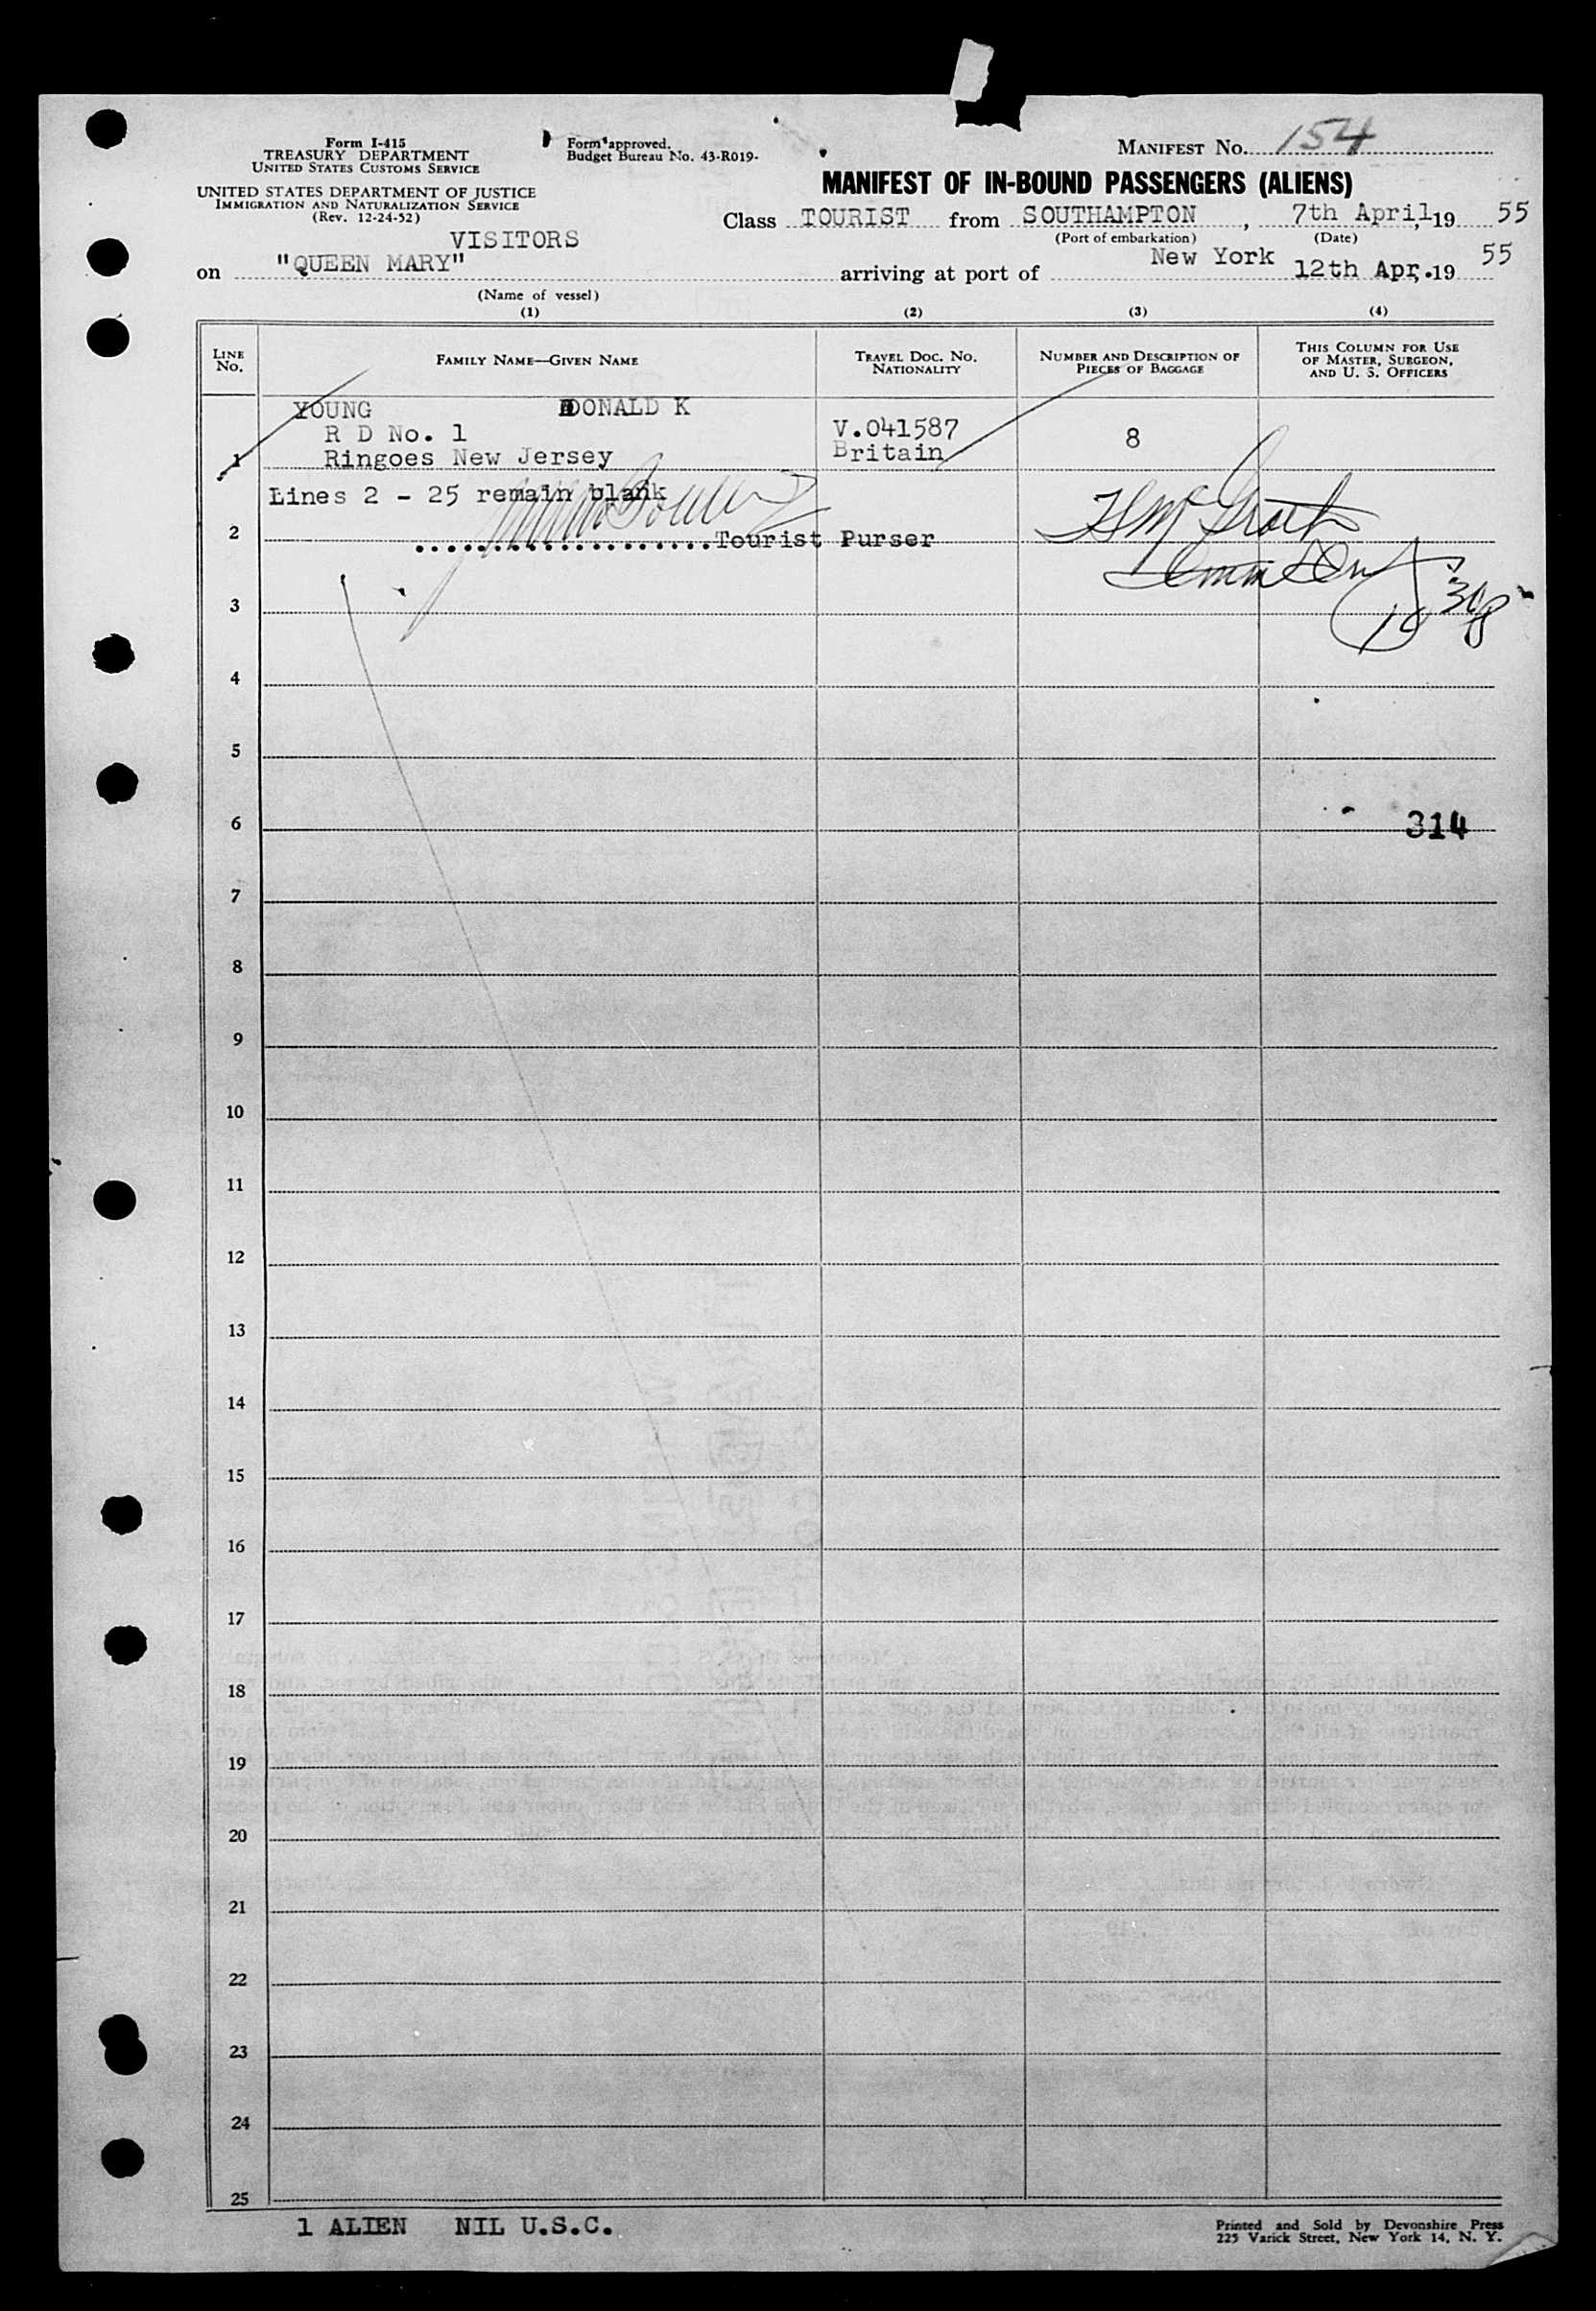 Form I-415
TREASURY DEPARTMENT
UNITED STATES CUSTOMS SERVICE
UNITED STATES DEPARTMENT OF JUSTICE
IMMIGRATION AND NATURALIZATION SERVICE
(Rev. 12-24-52)
Form approved.
Budget Bureau No. 43-R019-
MANIFEST NO. 154
MANIFEST OF IN-BOUND PASSENGERS (ALIENS)
Class TOURIST from SOUTHAMPTON, 7th April, 19 55
(Port of embarkation) (Date)
VISITORS
on "QUEEN MARY" arriving at port of New York 12th Apr, .19 55
(Name of vessel)
(1) (2) (3) (4)
LINE No. FAMILY NAME—GIVEN NAME TRAVEL DOC. NO. NATIONALITY NUMBER AND DESCRIPTION OF PIECES OF BAGGAGE THIS COLUMN FOR USE OF MASTER, SURGEON, AND U. S. OFFICERS
YOUNG DONALD K
R D No. 1 V.041587 8
1 Ringoes New Jersey Britain
Lines 2 - 25 remain blank
2 ...................Tourist Purser
3
4
5
6 314
7
8
9
10
11
12
13
14
15
16
17
18
19
20
21
22
23
24
25
1 ALIEN NIL U.S.C.
Printed and Sold by Devonshire Press
225 Varick Street, New York 14, N. Y.